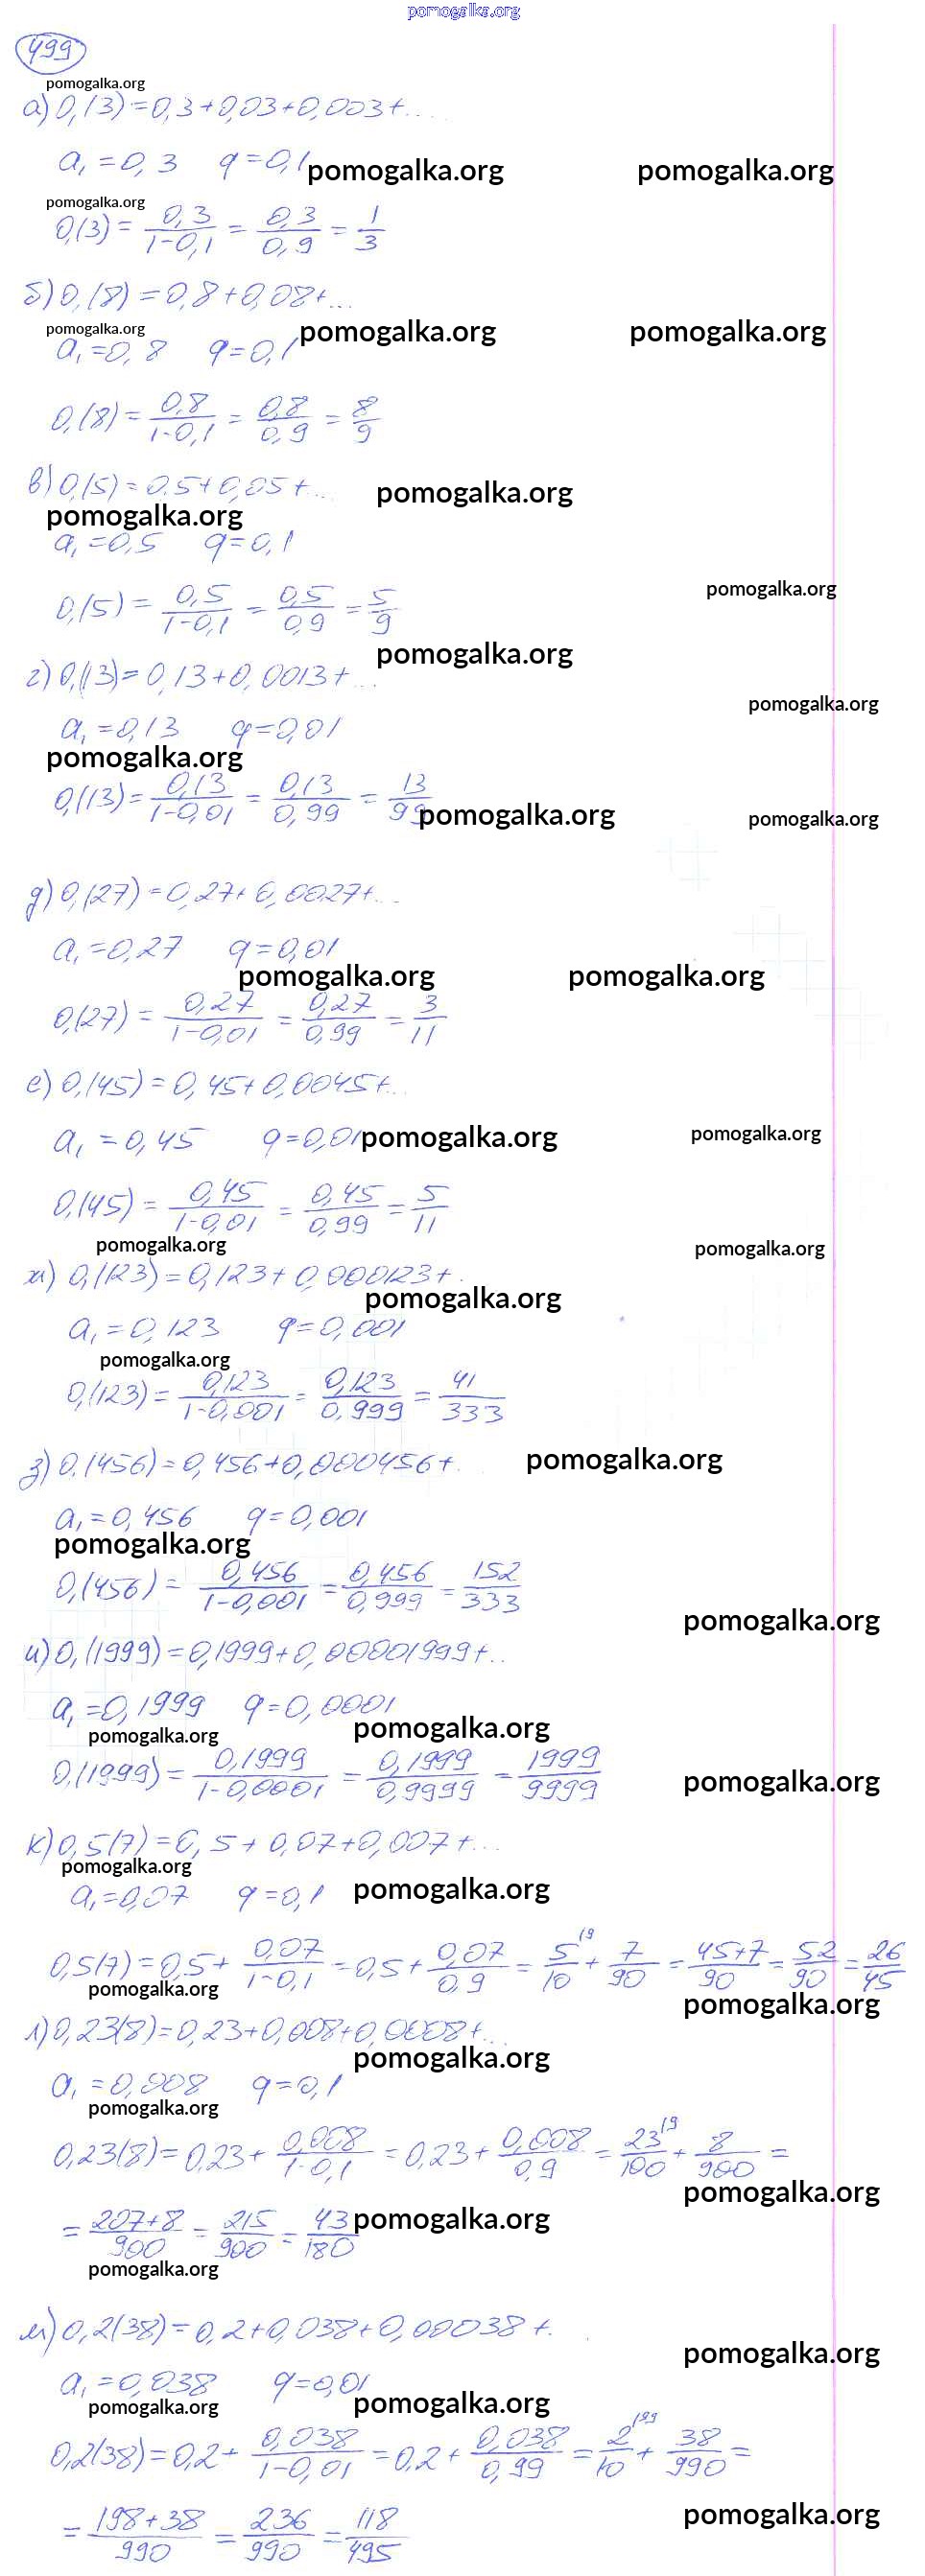 pomogalka.org
499
pomogalka.org
а) 0,(3) = 0,3 + 0,03 + 0,003 + ...
a₁ = 0,3 q = 0,1 pomogalka.org pomogalka.org
pomogalka.org
0,(3) = 0,3/(1-0,1) = 0,3/0,9 = 1/3
б) 0,(8) = 0,8 + 0,08 + ...
pomogalka.org pomogalka.org pomogalka.org
a₁ = 0,8 q = 0,1
0,(8) = 0,8/(1-0,1) = 0,8/0,9 = 8/9
в) 0,(5) = 0,5 + 0,05 + ... pomogalka.org
pomogalka.org
a₁ = 0,5 q = 0,1
pomogalka.org
0,(5) = 0,5/(1-0,1) = 0,5/0,9 = 5/9
pomogalka.org
г) 0,(13) = 0,13 + 0,0013 + ...
pomogalka.org
a₁ = 0,13 q = 0,01
pomogalka.org
0,(13) = 0,13/(1-0,01) = 0,13/0,99 = 13/99
pomogalka.org pomogalka.org
д) 0,(27) = 0,27 + 0,0027 + ...
a₁ = 0,27 q = 0,01
pomogalka.org pomogalka.org
0,(27) = 0,27/(1-0,01) = 0,27/0,99 = 3/11
е) 0,(45) = 0,45 + 0,0045 + ...
a₁ = 0,45 q = 0,01 pomogalka.org pomogalka.org
0,(45) = 0,45/(1-0,01) = 0,45/0,99 = 5/11
pomogalka.org pomogalka.org
ж) 0,(123) = 0,123 + 0,000123 + ..
pomogalka.org
a₁ = 0,123 q = 0,001
pomogalka.org
0,(123) = 0,123/(1-0,001) = 0,123/0,999 = 41/333
з) 0,(456) = 0,456 + 0,000456 + .. pomogalka.org
a₁ = 0,456 q = 0,001
pomogalka.org
0,(456) = 0,456/(1-0,001) = 0,456/0,999 = 152/333
pomogalka.org
и) 0,(1999) = 0,1999 + 0,00001999 + ..
a₁ = 0,1999 q = 0,0001
pomogalka.org pomogalka.org
0,(1999) = 0,1999/(1-0,0001) = 0,1999/0,9999 = 1999/9999
pomogalka.org
к) 0,5(7) = 0,5 + 0,07 + 0,007 + ...
pomogalka.org
a₁ = 0,07 q = 0,1 pomogalka.org
0,5(7) = 0,5 + 0,07/(1-0,1) = 0,5 + 0,07/0,9 = 5/10 ⁽⁹ + 7/90 = (45+7)/90 = 52/90 = 26/45
pomogalka.org pomogalka.org
л) 0,23(8) = 0,23 + 0,008 + 0,0008 + ..
pomogalka.org
a₁ = 0,008 q = 0,1
pomogalka.org
0,23(8) = 0,23 + 0,008/(1-0,1) = 0,23 + 0,008/0,9 = 23/100 ⁽⁹ + 8/900 =
pomogalka.org
= (207+8)/900 = 215/900 = 43/180 pomogalka.org
pomogalka.org
м) 0,2(38) = 0,2 + 0,038 + 0,00038 + ..
pomogalka.org
a₁ = 0,038 q = 0,01
pomogalka.org pomogalka.org
0,2(38) = 0,2 + 0,038/(1-0,01) = 0,2 + 0,038/0,99 = 2/10 ⁽⁹⁹ + 38/990 =
pomogalka.org
= (198+38)/990 = 236/990 = 118/495